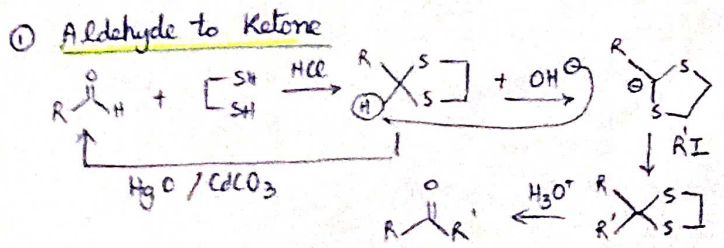 ① Aldehyde to Ketone
O
R H + SH SH HCl R S H S + OH⊖ R S ⊖ S
R'I
HgO / CdCO3
O
R R' H3O+ R S R' S